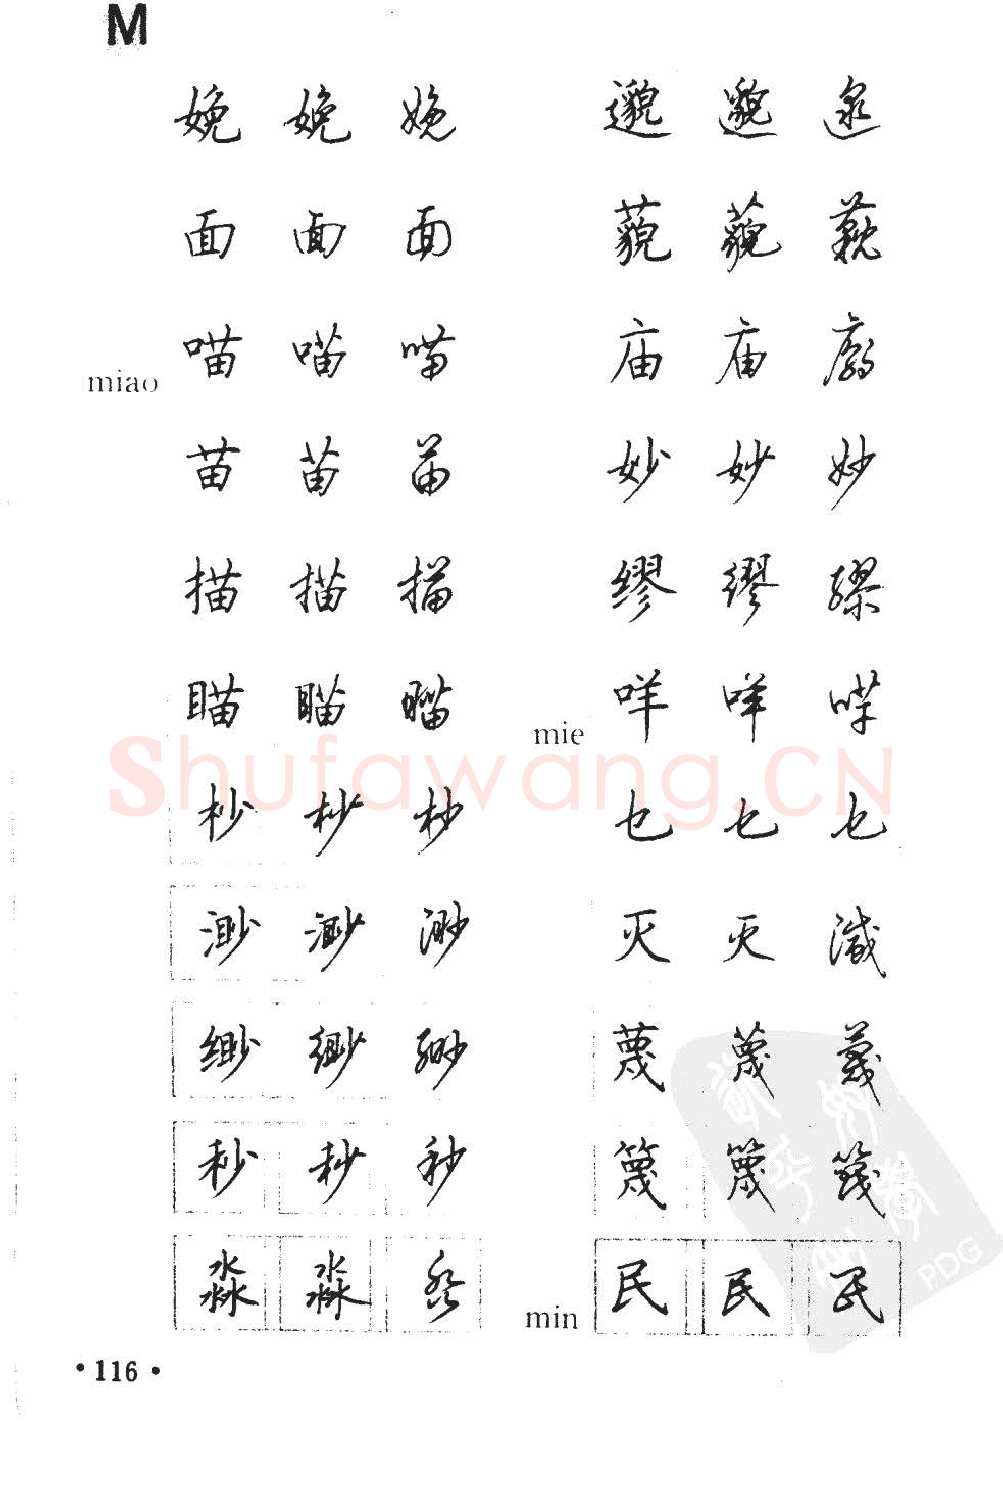 M
娩 娩 娩
面 面 面
miao
喵 喵 喵
苗 苗 苗
描 描 描
瞄 瞄 瞄
杪 杪 杪
渺 渺 渺
缈 缈 缈
秒 秒 秒
淼 淼 淼
邈 邈 邈
藐 藐 藐
庙 庙 庙
妙 妙 妙
缪 缪 缪
mie
咩 咩 咩
乜 乜 乜
灭 灭 滅
蔑 蔑 蔑
篾 篾 篾
min
民 民 民
·116·
Shufawang.CN
PDG